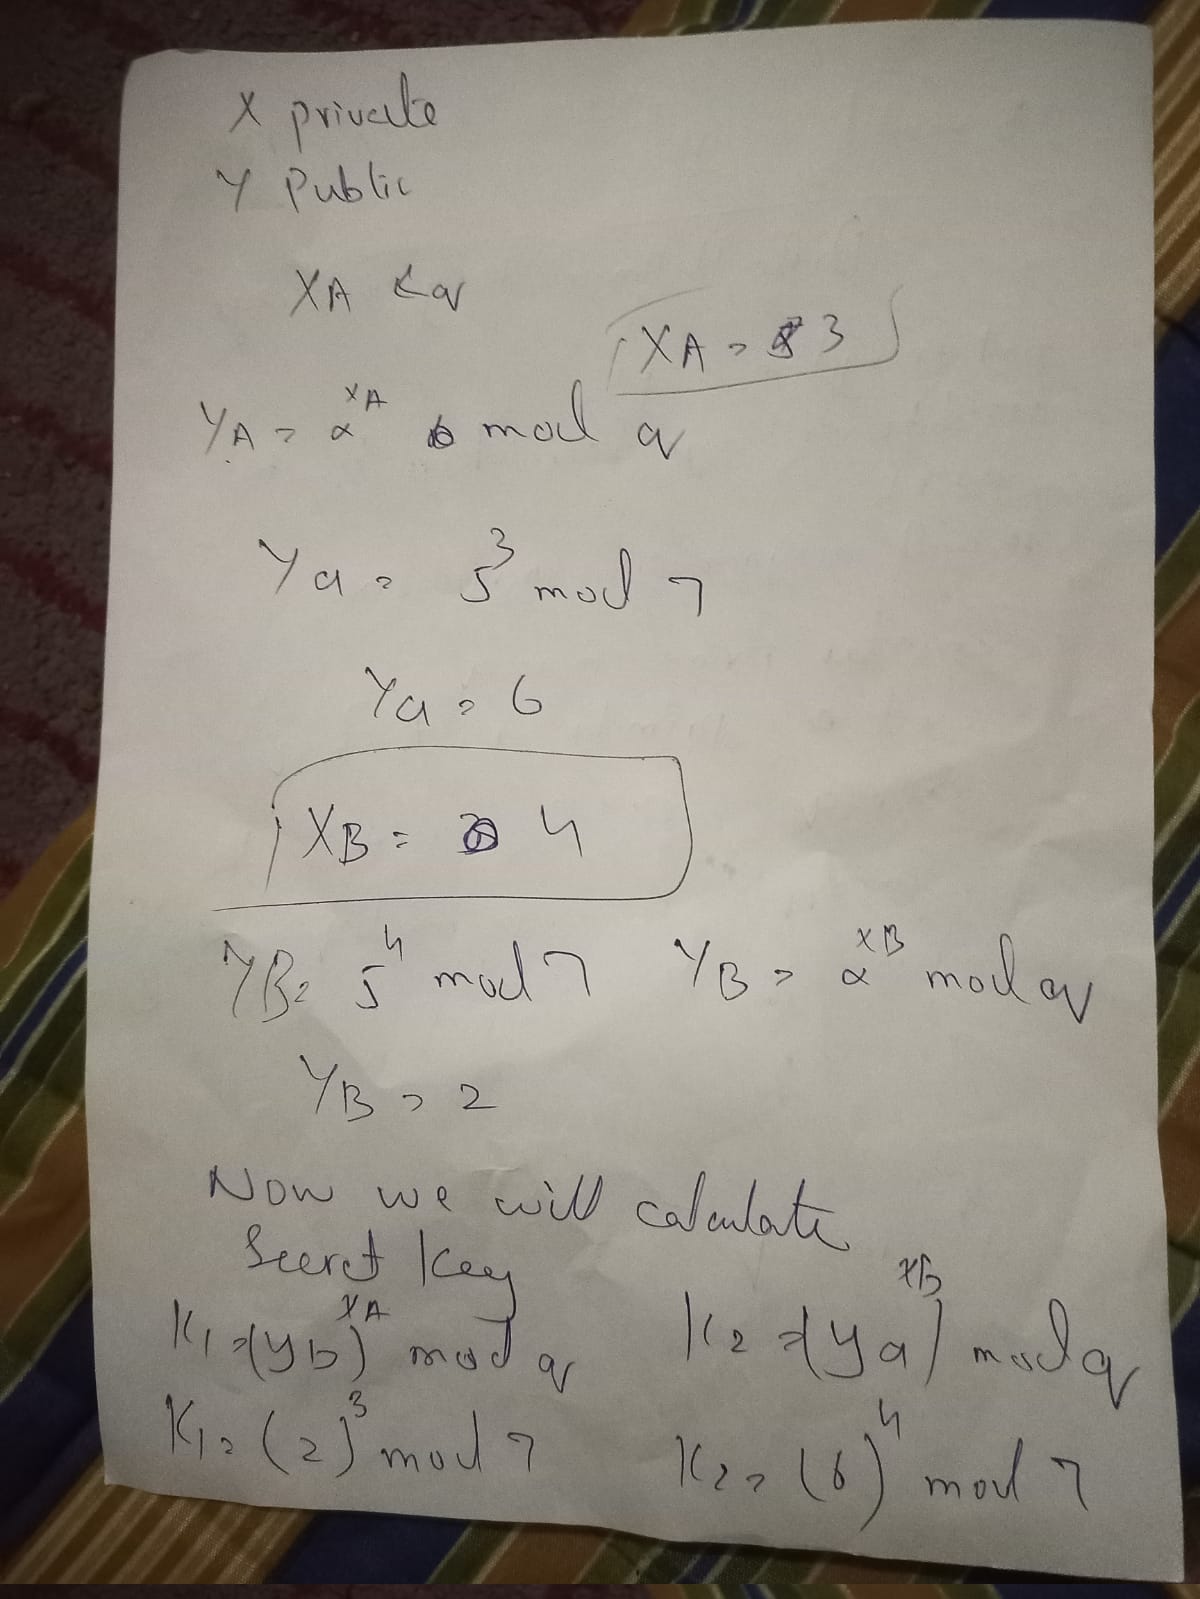 X private
Y Public
XA < q
XA = 3
YA = α^XA mod q
Ya = 5^3 mod 7
Ya = 6
XB = 4
YB = 5^4 mod 7 YB = α^XB mod q
YB = 2
Now we will calculate
Secret Key
K1 = (Yb)^XA mod q K2 = (Ya)^XB mod q
K1 = (2)^3 mod 7 K2 = (6)^4 mod 7